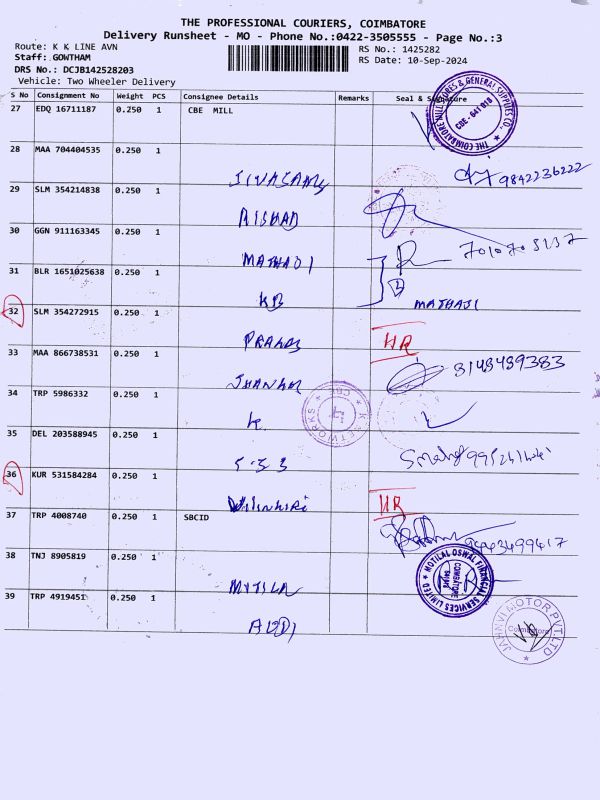 THE PROFESSIONAL COURIERS, COIMBATORE
Delivery Runsheet - MO - Phone No.:0422-3505555 - Page No.:3
Route: K K LINE AVN
Staff: GOWTHAM
DRS No.: DCJB142528203
Vehicle: Two Wheeler Delivery
RS No.: 1425282
RS Date: 10-Sep-2024
S No Consignment No Weight PCS Consignee Details Remarks Seal & Signature
27 EDQ 16711187 0.250 1 CBE MILL
THE COIMBATORE MILL STORES & GENERAL SUPPLIES CO.
CBE - 641 018
28 MAA 704404535 0.250 1
9842236222
29 SLM 354214838 0.250 1
RISHAD
30 GGN 911163345 0.250 1
MATHAJI
31 BLR 1651025638 0.250 1
KB
2
MATHAJI
32 SLM 354272915 0.250 1
HR
33 MAA 866738531 0.250 1
34 TRP 5986332 0.250 1
K NETWORKS
CBE
35 DEL 203588945 0.250 1
36 KUR 531584284 0.250 1
HR
37 TRP 4008740 0.250 1 SBCID
38 TNJ 8905819 0.250 1
MOTILAL OSWAL FINANCIAL SERVICES LIMITED
COIMBATORE
39 TRP 4919451 0.250 1
AUDI
JAHNVI MOTOR PVT.LTD
Coimbatore